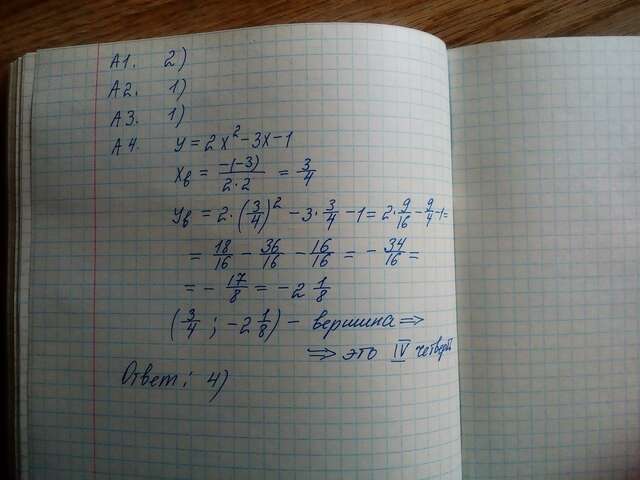 A1. 2)
A2. 1)
A3. 1)
A4. y = 2x² - 3x - 1
xв = -(-3)/2·2 = 3/4
yв = 2·(3/4)² - 3·3/4 - 1 = 2·9/16 - 9/4 - 1 =
= 18/16 - 36/16 - 16/16 = - 34/16 =
= - 17/8 = -2 1/8
(3/4 ; -2 1/8) - вершина ⇒
⇒ это IV четверть
Ответ: 4)